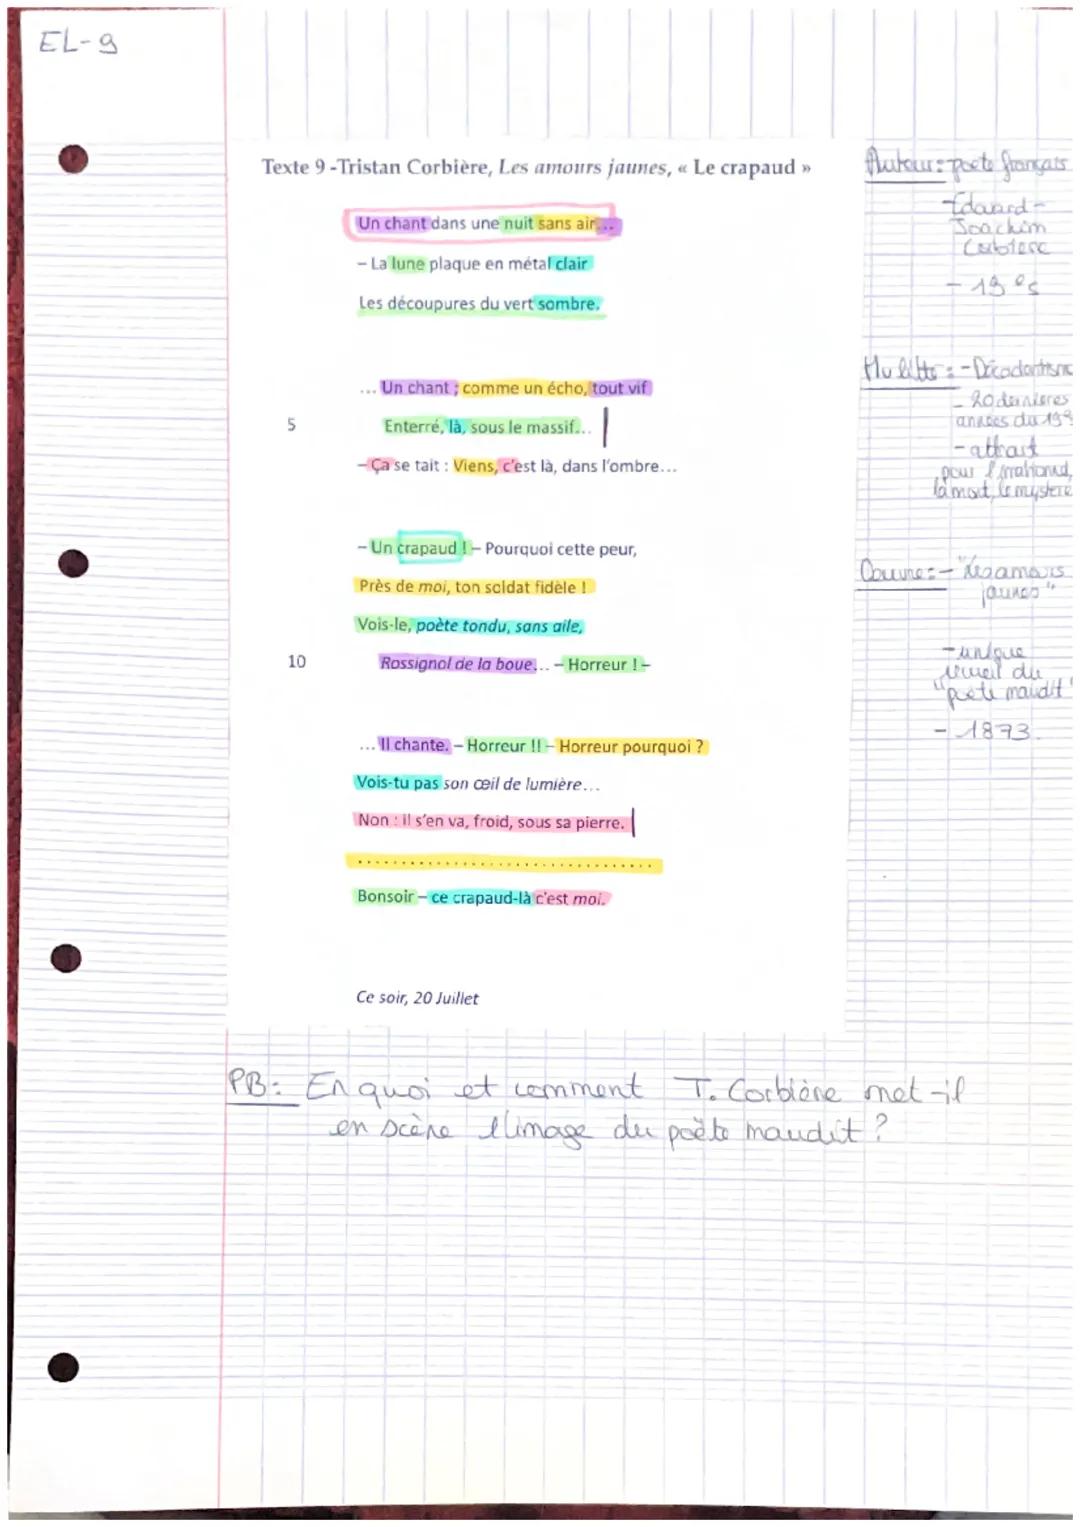 EL-9
Texte 9 -Tristan Corbière, Les amours jaunes, « Le crapaud »
Un chant dans une nuit sans air...
– La lune plaque en métal clair
Les découpures du vert sombre.
... Un chant ; comme un écho, tout vif
5 Enterré, là, sous le massif...
– Ça se tait : Viens, c'est là, dans l'ombre...
– Un crapaud ! – Pourquoi cette peur,
Près de moi, ton soldat fidèle !
Vois-le, poète tondu, sans aile,
10 Rossignol de la boue... – Horreur ! –
... Il chante. – Horreur !! – Horreur pourquoi ?
Vois-tu pas son œil de lumière...
Non : il s'en va, froid, sous sa pierre.
..................................
Bonsoir – ce crapaud-là c'est moi.
Ce soir, 20 Juillet
Auteur: poète français
- Edouard-
Joachim
Corbière
- 19 es
Mv litt : - Décadentisme
- 20 dernières
années du 19e
- attrait
pour l'irrationnel,
la mort, le mystère
Oeuvre: - "Les amours
jaunes"
- unique
recueil du
"poète maudit"
- 1873.
PB: En quoi et comment T. Corbière met-il
en scène l'image du poète maudit ?